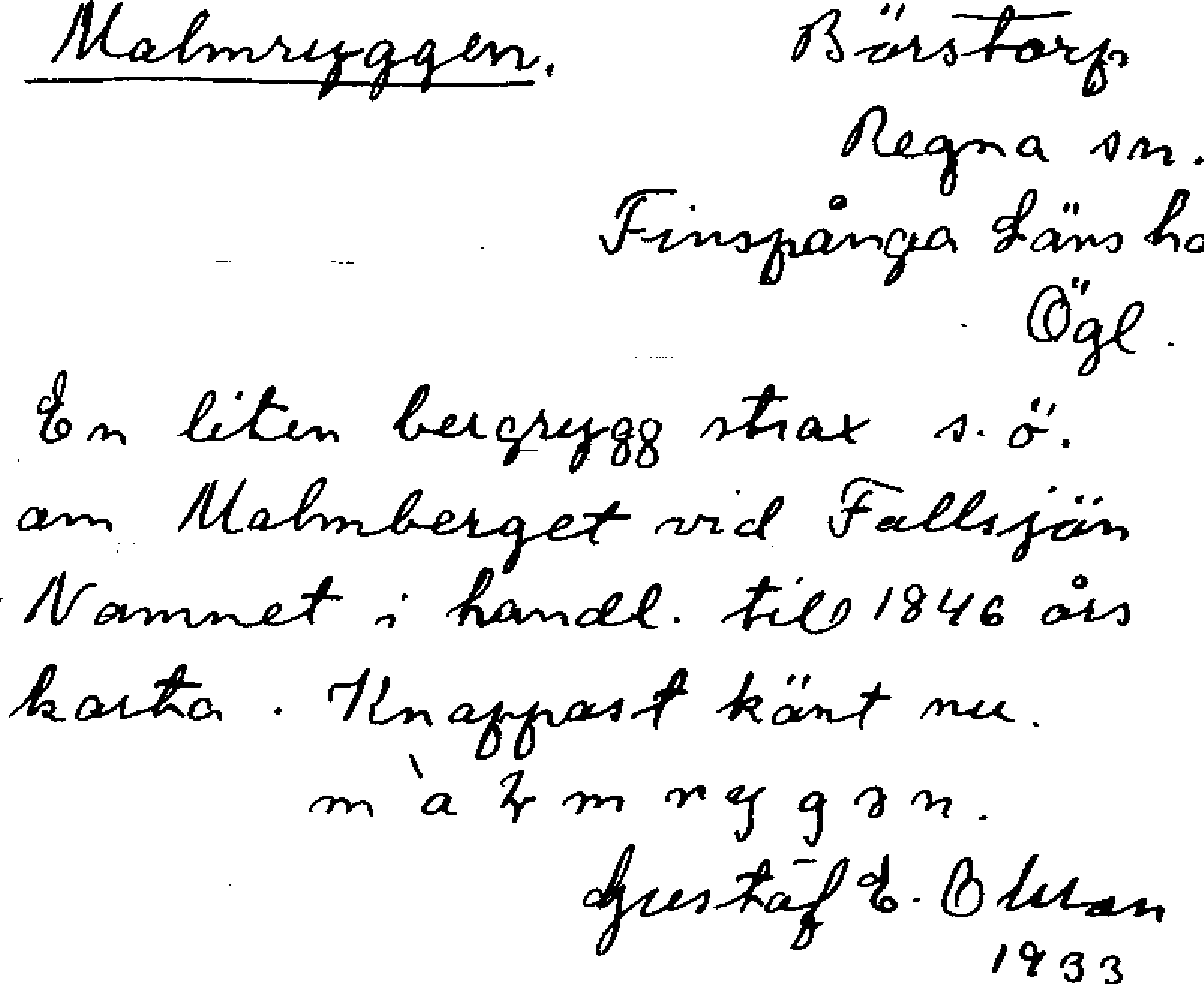 Malmryggen. Börstorp
Regna sn.
Finspånga Läns hd
Ögl.
En liten bergrygg strax s.ö.
om Malmberget vid Fallsjön
Namnet i handl. till 1846 års
karta. Knappast känt nu.
Gustaf E. Olsson
1933